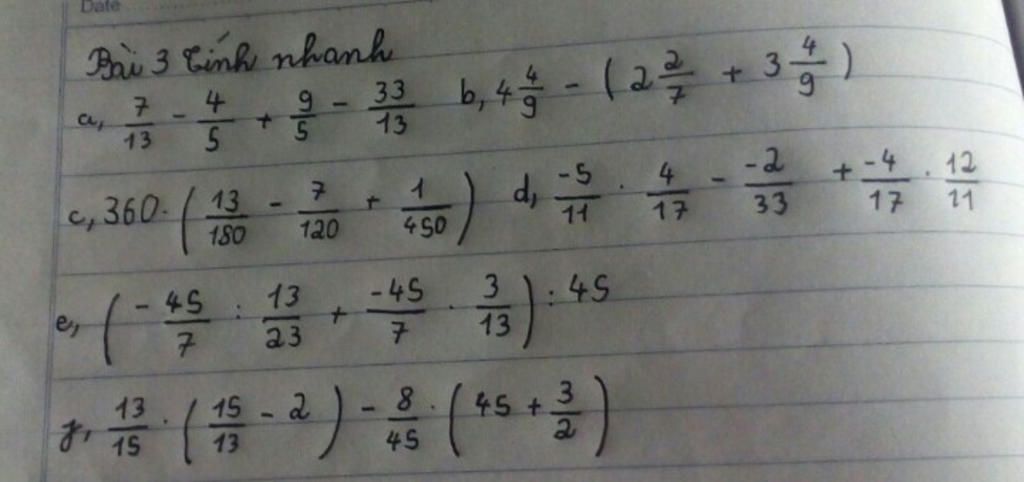 Date
Bài 3 Tính nhanh
a, 7/13 - 4/5 + 9/5 - 33/13 b, 4 4/9 - (2 2/7 + 3 4/9)
c, 360 . (13/180 - 7/120 + 1/450) d, -5/11 . 4/17 - -2/33 + -4/17 . 12/11
e, (- 45/7 : 13/23 + -45/7 . 3/13) : 45
g, 13/15 . (15/13 - 2) - 8/45 . (45 + 3/2)